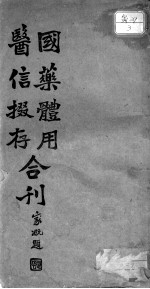 國藥體用
醫信掇存
合刊
家駹題